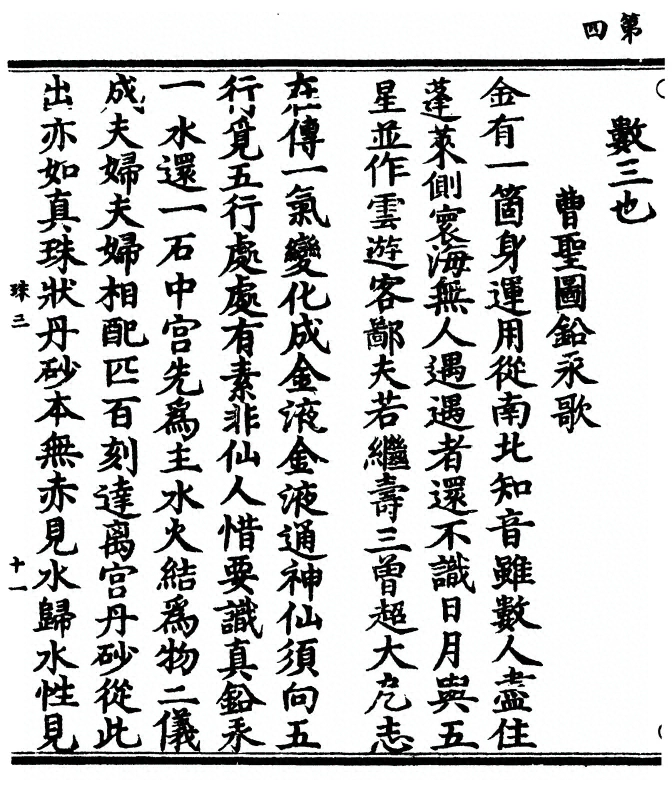 第四
數三也
曹聖圖鉛汞歌
金有一箇身運用從南北知音雖數人盡住
蓬萊側寰海無人遇遇者還不識日月與五
星並作雲遊客鄙夫若繼壽三曾超大危志
在傳一氣變化成金液金液通神仙須向五
行覓五行處處有素非仙人惜要識真鉛汞
一水還一石中宮先為主水火結為物二儀
成夫婦夫婦相配匹百刻達离宮丹砂從此
出亦如真珠狀丹砂本無赤見水歸水性見
珠三
十一